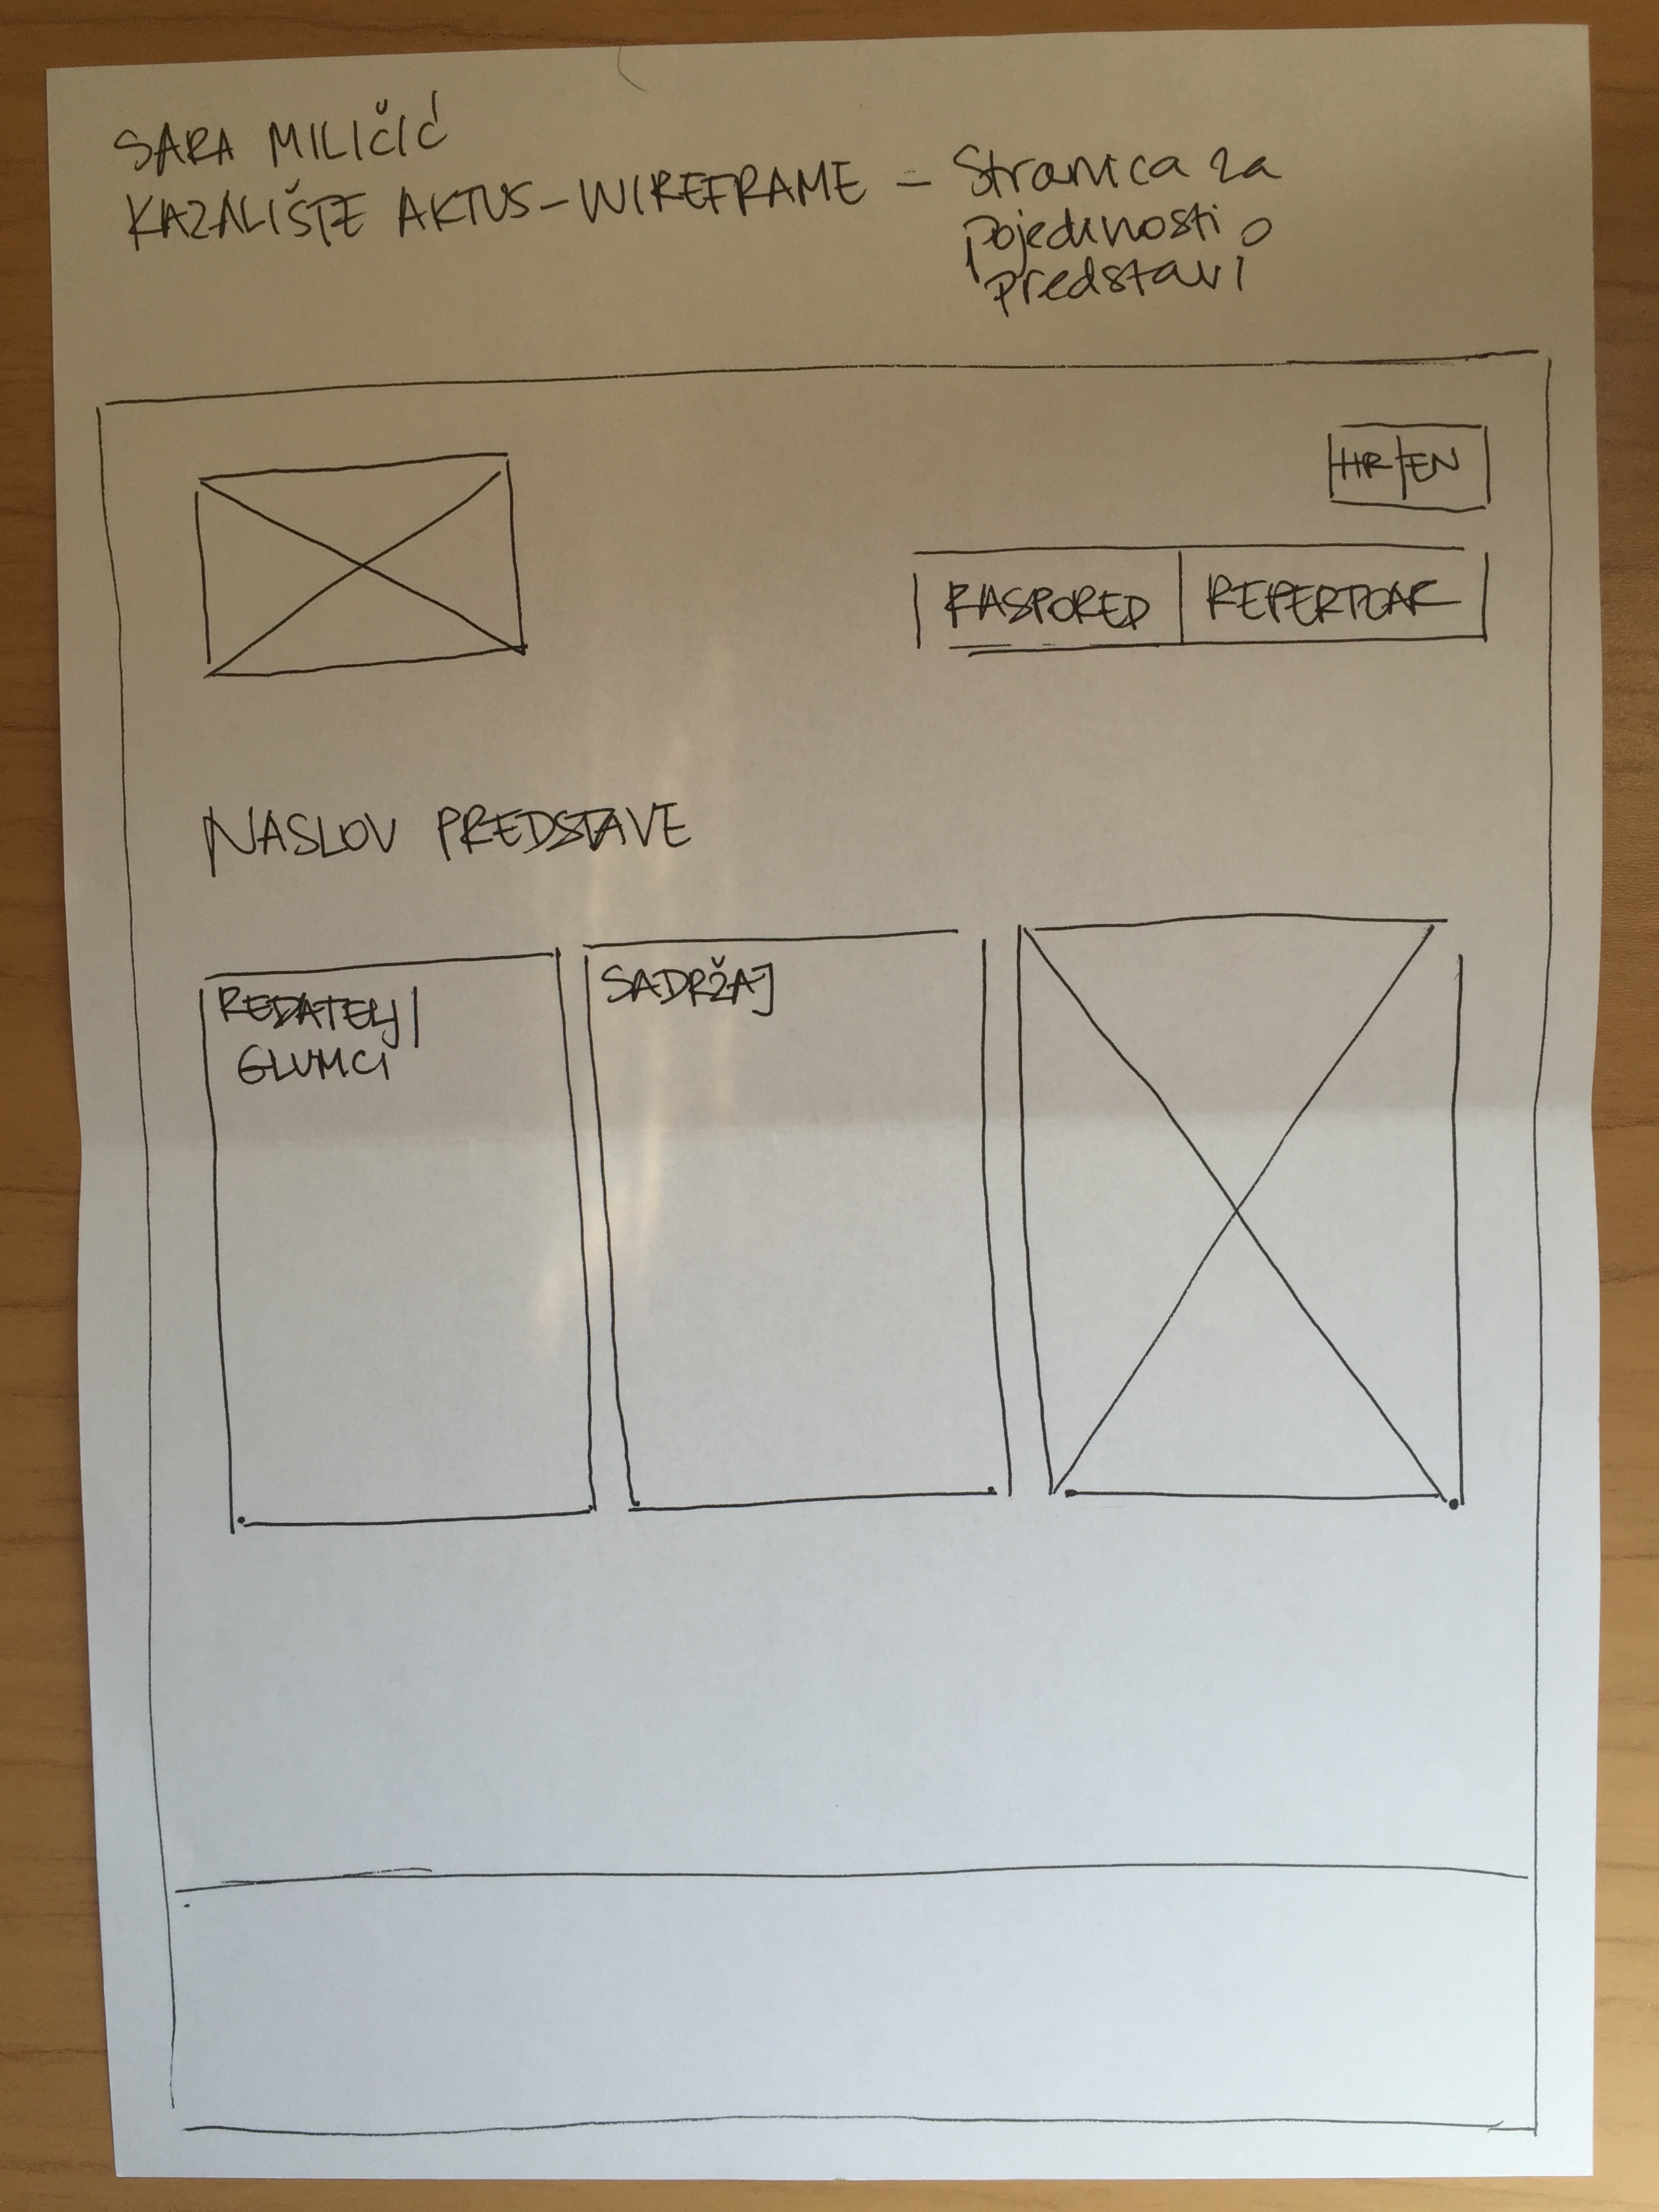 SARA MILIČIĆ
KAZALIŠTE AKTUS-WIREFRAME – Stranica za
pojedinosti o
predstavi
HR|EN
RASPORED REPERTOAR
NASLOV PREDSTAVE
REDATELJ|
GLUMCI
SADRŽAJ